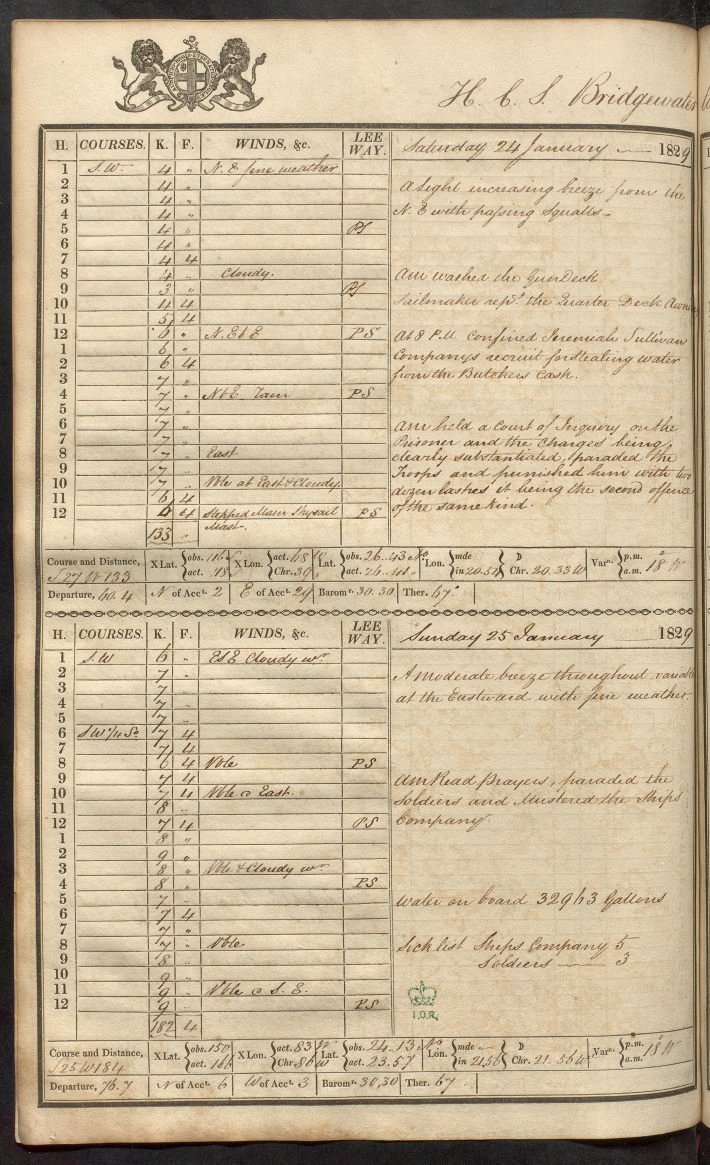 H. C. S. Bridgewater
H. COURSES. K. F. WINDS, &c. LEE WAY. Saturday 24 January 1829
1 S.W. 4 " N. E fine weather
2 4 " A light increasing breeze from the
3 4 "
4 4 " N. E with passing Squalls.
5 4 " PS
6 4 "
7 4 4
8 4 " Cloudy. AM washed the Gun Deck
9 3 " PS
10 4 4 Sailmaker repd. the Quarter Deck
11 5 4
12 5 " N. E b E PS At 8 P.M confined Jeremiah Sullivan
1 6 " Companys recruit for Stealing water
2 6 4 from the Butchers Cask.
3 7 "
4 7 " PS
5 7 "
6 7 " AM held a Court of Inquiry on the
7 7 " Prisoner and the charges being
8 7 " East clearly substantiated, paraded the
9 7 " Troops and punished him with two
10 7 " Vble at East & Cloudy. dozen lashes it being the second offence
11 6 4 of the same kind.
12 4 Stepped Main Skysail PS
133 " Mast.
Course and Distance, S 27 W 133 X Lat. obs. act. X Lon. act. 68 Chr. 39 Lat. obs. 26..43 act. Lon. mde in 20.52 D Chr. 20.33 W Varn. p.m. a.m. 18° W
Departure, 60.4 N of Acct. 2 E of Acct. 29 Baromr. 30.30 Ther. 67°
H. COURSES. K. F. WINDS, &c. LEE WAY. Sunday 25 January 1829
1 S.W 6 " E b E Cloudy wr.
2 7 " A moderate breeze throughout variable
3 7 " at the Eastward with fine weather.
4 7 "
5 7 "
6 7 4
7 7 4
8 6 4 Vble PS
9 7 4 AM Read prayers, paraded the
10 7 4 Vble @ East. Soldiers and Mustered the Ships
11 8 "
12 7 4 PS Company.
1 8 "
2 9 "
3 8 " Vble & Cloudy wr.
4 8 " PS
5 7 " Water on board 32963 Gallons
6 7 4
7 7 "
8 7 " Vble Sick list Ships Company 5
9 8 " Soldiers 3
10 9 "
11 9 " Vble @ S. E.
12 9 " PS
182 4
I.O.R.
Course and Distance, S 25 W 184 X Lat. obs. 150 act. 166 X Lon. act. 83 W Chr. 86 W Lat. obs. 24.13 act. 23.57 Lon. mde in 21.56 D Chr. 21.56 W Varn. p.m. a.m. 18° W
Departure, 76.7 N of Acct. 6 W of Acct. 3 Baromr. 30,30 Ther. 67.